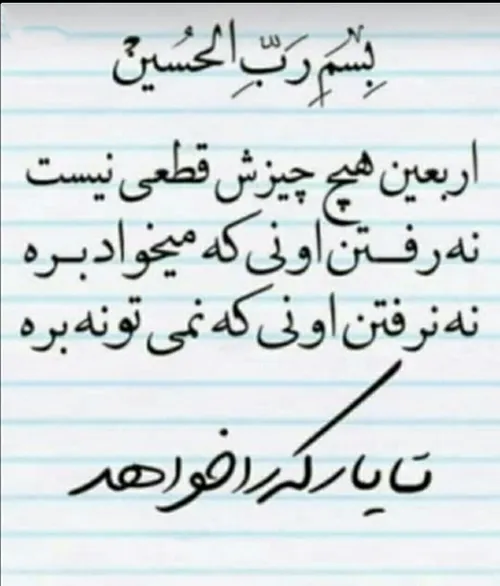 بِسْمِ رَبِّ الحُسین
اربعین هیچ چیزش قطعی نیست
نه رفتن اونی که میخواد بره
نه نرفتن اونی که نمی تونه بره
تا یار که را خواهد